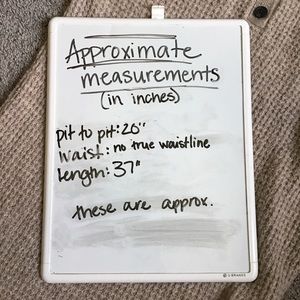 Approximate
measurements
(in inches)
pit to pit: 20"
waist: no true waistline
length: 37"
these are approx.